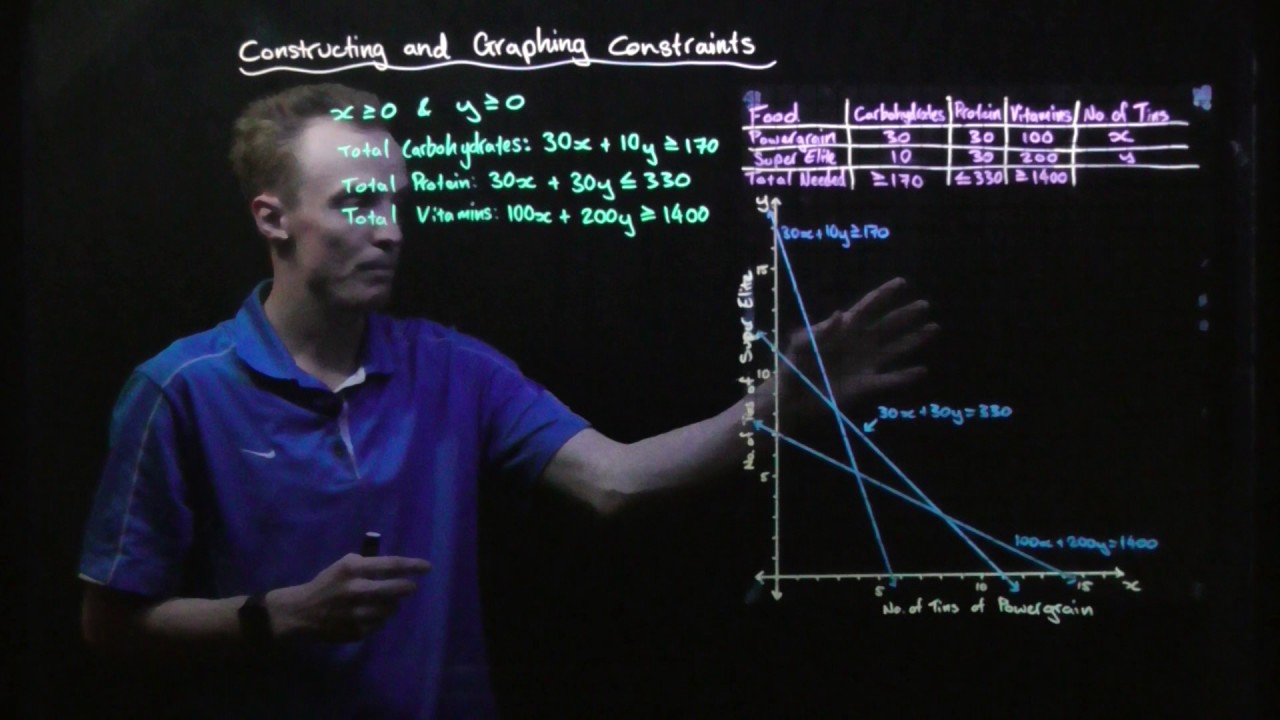 Constructing and Graphing Constraints
x ≥ 0 & y ≥ 0
Total Carbohydrates: 30x + 10y ≥ 170
Total Protein: 30x + 30y ≤ 330
Total Vitamins: 100x + 200y ≥ 1400
Food Carbohydrates Protein Vitamins No. of Tins
Powergrain 30 30 100 x
Super Elite 10 30 200 y
Total Needed ≥170 ≤330 ≥1400
y
30x+10y≥170
15
No. of Tins of Super Elite
10
30x+30y=330
5
100x+200y=1400
5 10 15 x
No. of Tins of Powergrain